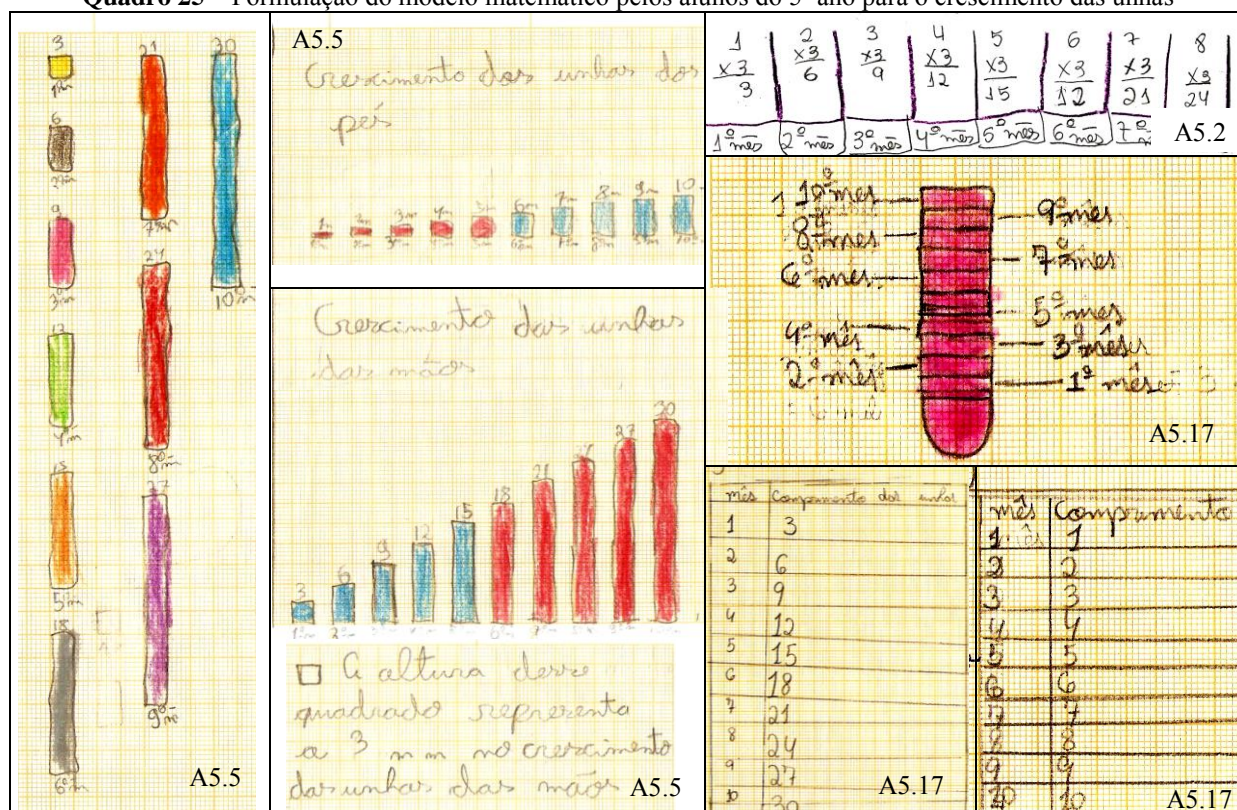 Quadro 25 – Formulação do modelo matemático pelos alunos do 5º ano para o crescimento das unhas
3
6
9
3ºm
12
4ºm
15
5ºm
18
6ºm
21
7ºm
24
8ºm
27
9ºm
30
10ºm
A5.5
A5.5
Crescimento das unhas dos
pés
6ºm 7m 8m 9m 10
Crescimento das unhas
das mãos
3 6 9 12 15 18 21 27 30
1ºm 2ºm
A altura desse
quadrado representa
a 3 mm no crescimento
das unhas das mãos
A5.5
1 2 3 4 5 6 7 8
x3 x3 x3 x3 x3 x3 x3 x3
3 6 9 12 15 12 21 24
1º mês 2º mês 3º mês 4º mês 5º mês 6º mês 7º
A5.2
10º mês
9º mês
8º mês
7º mês
6º mês
5º mês
4º mês
3º mês
2º mês
1º mês
A5.17
mês
1 3
2 6
3 9
4 12
5 15
6 18
7 21
8 24
9 27
10 30
A5.17
mês Comprimento
1 1
2 2
3 3
4 4
5 5
6 6
7 7
8 8
9 9
10 10
A5.17